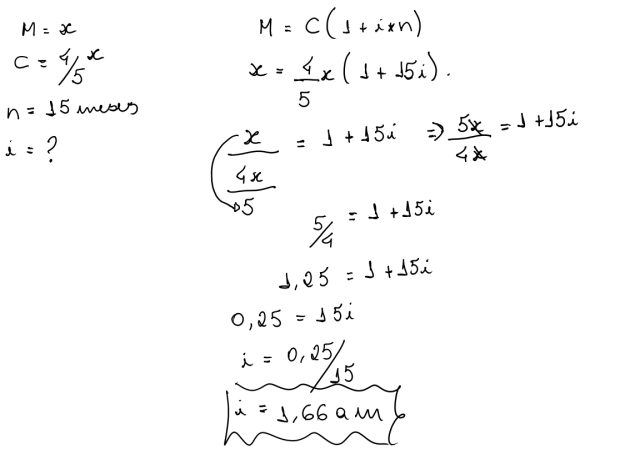 M = x
C = 4/5 x
n = 15 meses
i = ?
M = C(1 + i*n)
x = 4/5 x (1 + 15i).
x/(4x/5) = 1 + 15i => 5x/4x = 1 + 15i
5/4 = 1 + 15i
1,25 = 1 + 15i
0,25 = 15i
i = 0,25/15
i = 1,66 a m